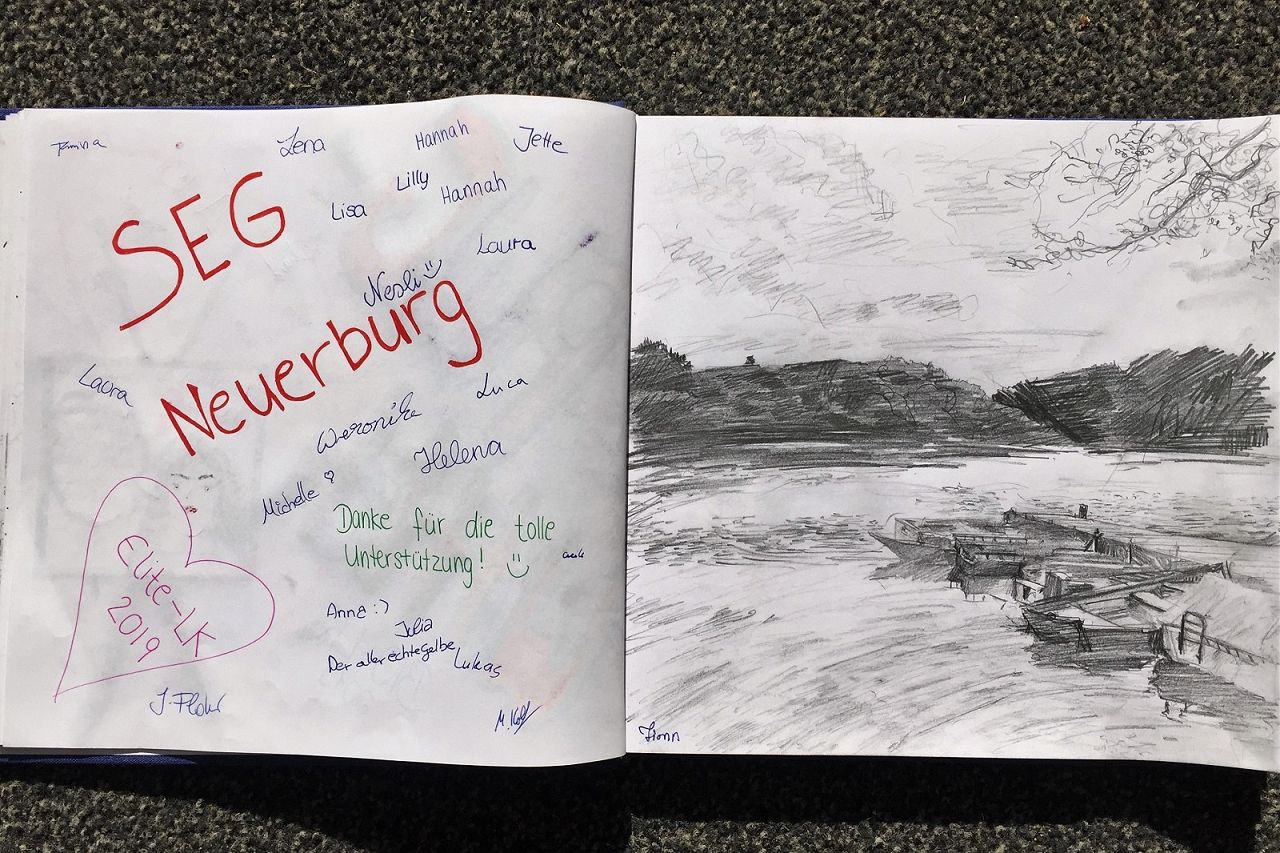 Lena
Hannah
Jette
Lilly
Hannah
Lisa
SEG
Laura
Nesli
Neuerburg
Laura
Luca
Weronika
Helena
Michelle
Danke für die tolle
Unterstützung!
Elite-LK
2019
Anna :)
Julia
Der allerechte Gelbe
Lukas
J. Flohr